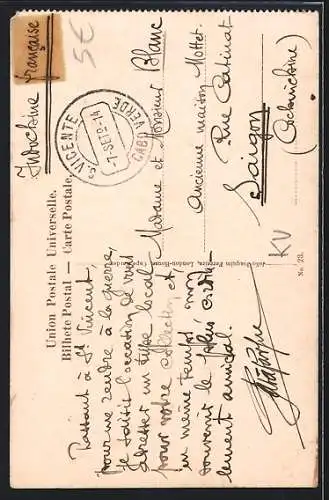 Indochine Française
5€
Union Postale Universelle.
Bilhete Postal — Carte Postale.
S. VICENTE
CABO VERDE
-7.SET.
Passant à St Vincent,
pour me rendre à la guerre,
je saisis l'occasion de vous
adresser un type local
pour votre collection et
en même temps mon
souvenir le plus
lement amical.
Madame et Monsieur Blanc
ancienne maison Mottet.
Rue Catinat
Saigon
(Cochinchine)
KV
João Joaquim Ferreira, London-Bazar, Cape Verdes
No. 23.